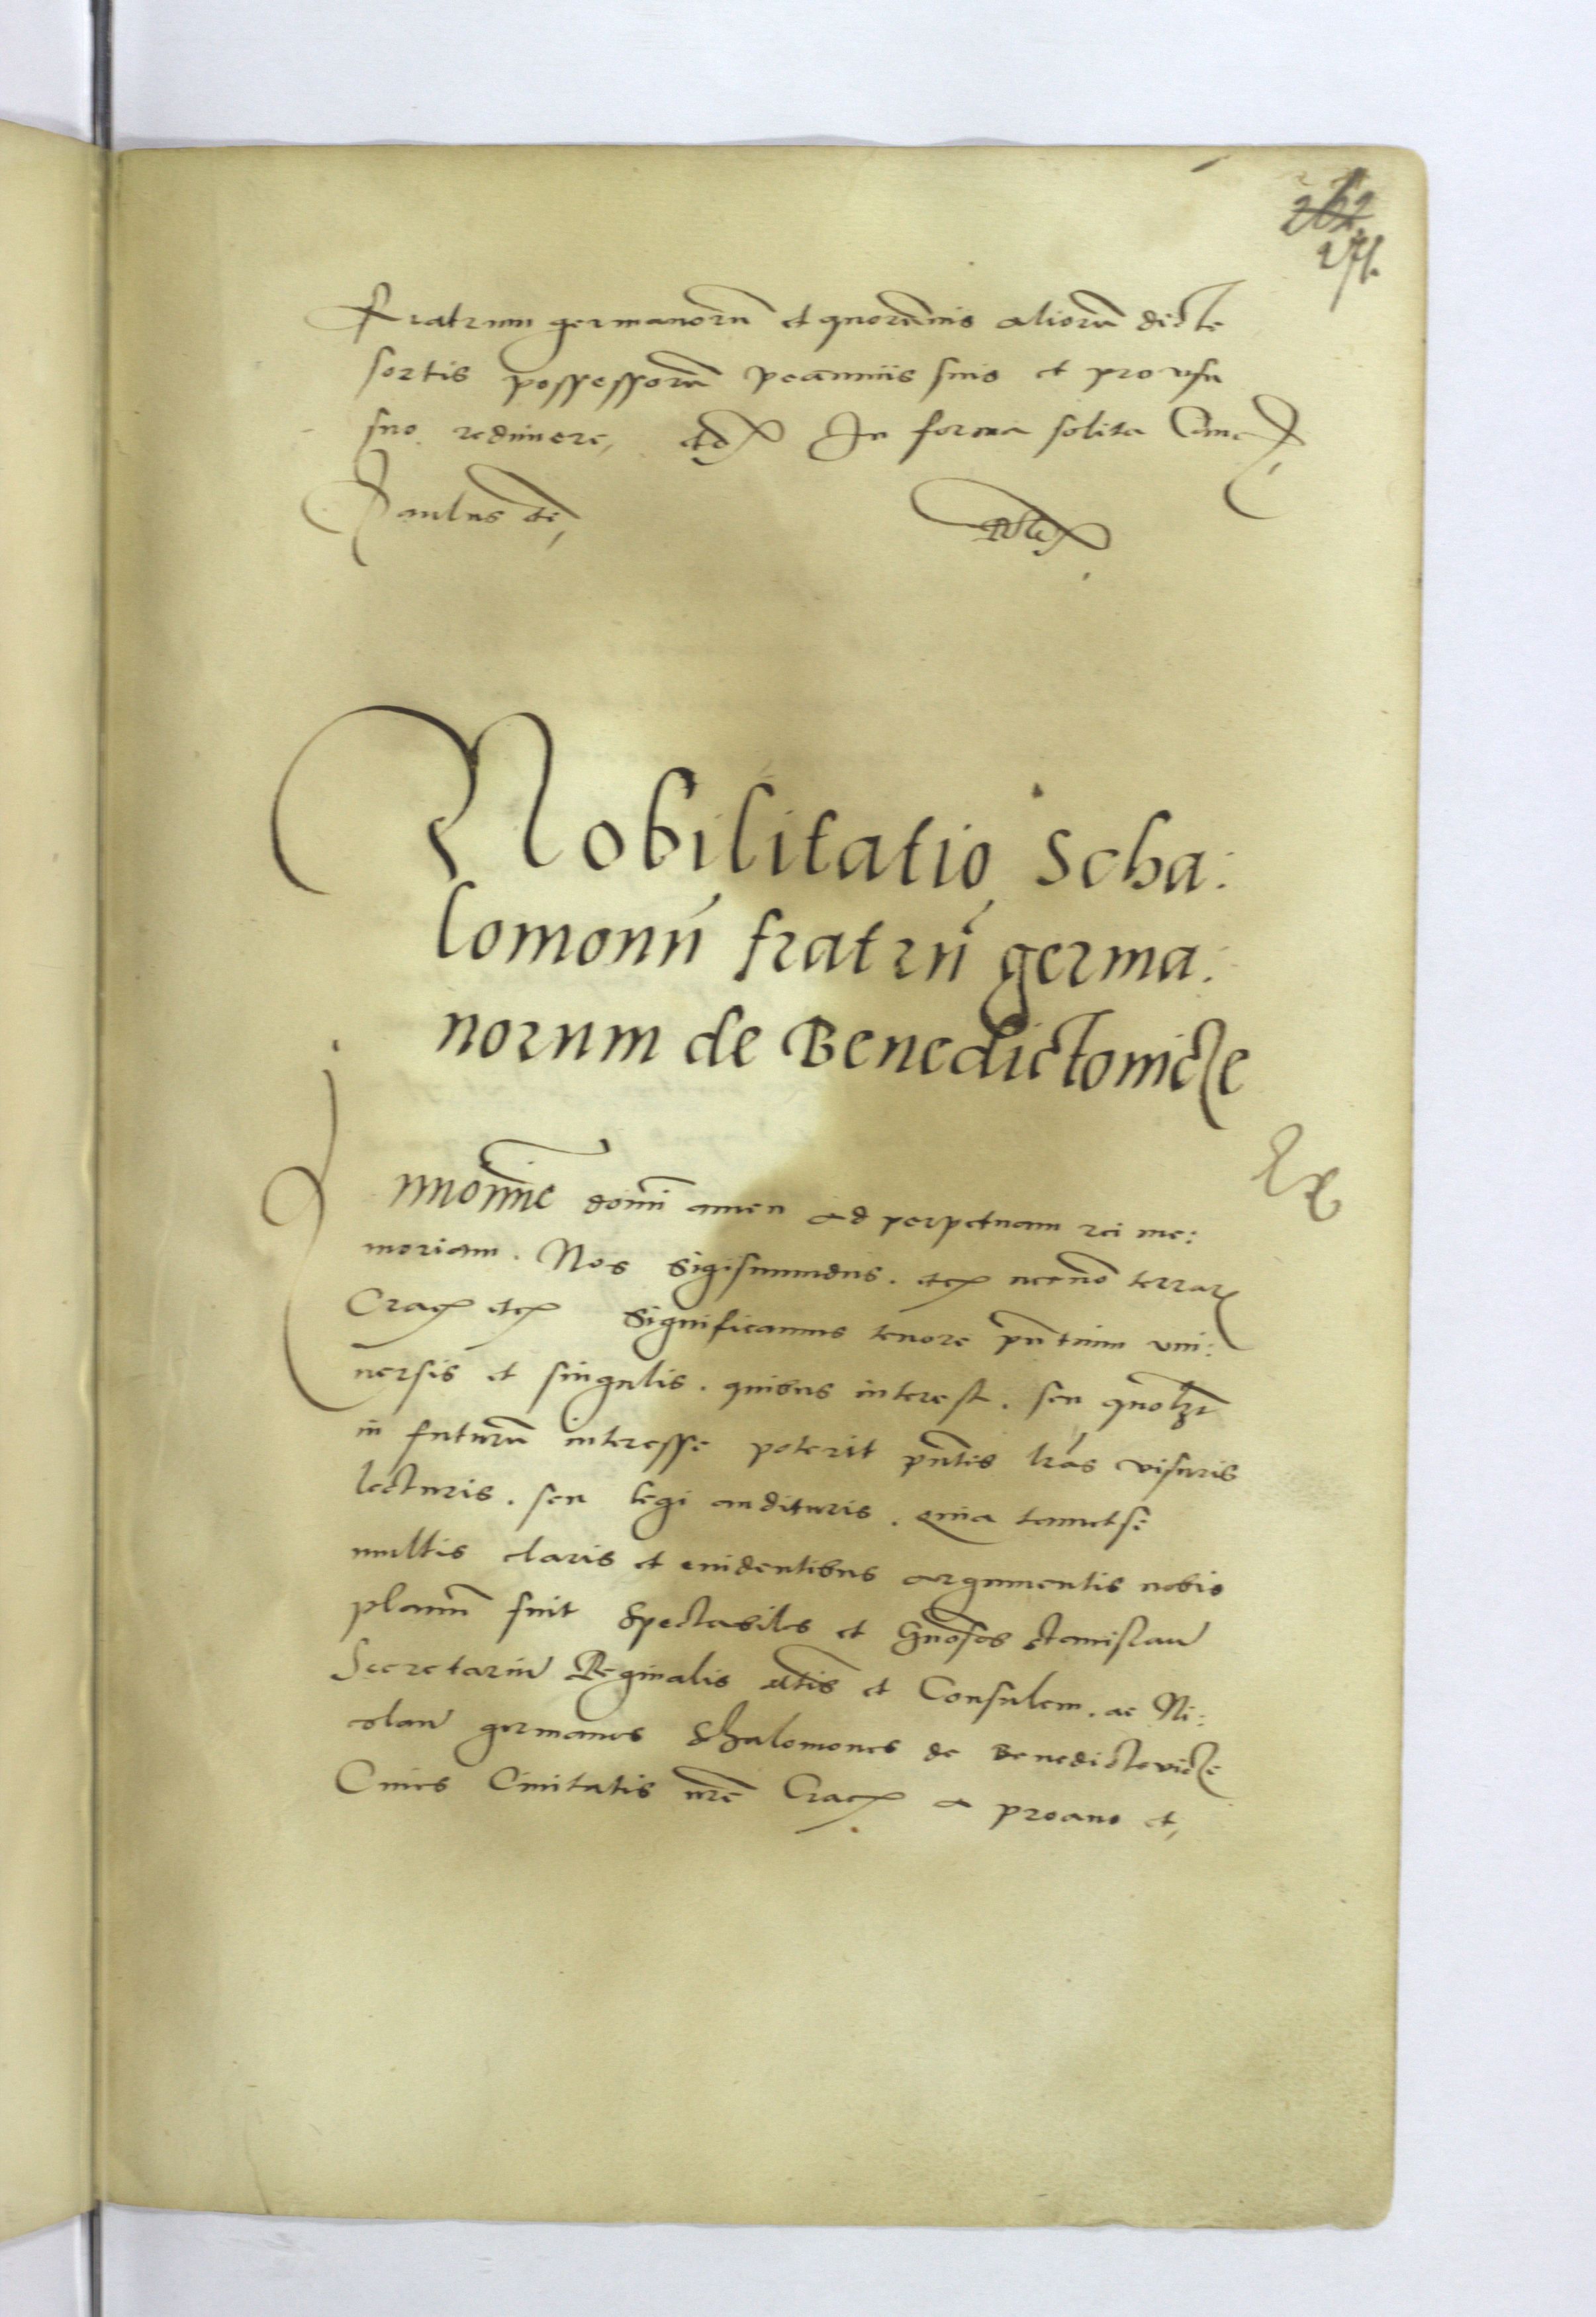 262
271.
Fratrum germanorū et quorūuis aliorū dicte
sortis possessorū pecuniis suis et pro vsu
suo redimere, etc In forma solita Canc
Paulus etc,
Nobilitatio Scha:
lomonū fratrū germa:
norum de Benedictouicze
In noīe domī amen ad perpetuam rei me:
moriam. Nos Sigismundus. etc necnō terrar
Crac etc Significamus tenore pn̄tium vni:
uersis et singulis. quibus interest. seu quolz̄
in futurū interesse poterit pn̄tes lr̄as visuris
lecturis. seu legi audituris. quia tametsi
multis claris et euidentibus argumentis nobis
planū fuit Spectabiles et Gn̄osos Stanislaū
Secretariū Reginalis Mtis et Consulem. ac Ni:
colaū germanos Schalomones de Benedictovicze
Ciues Ciuitatis nr̄e Crac a proauo et,